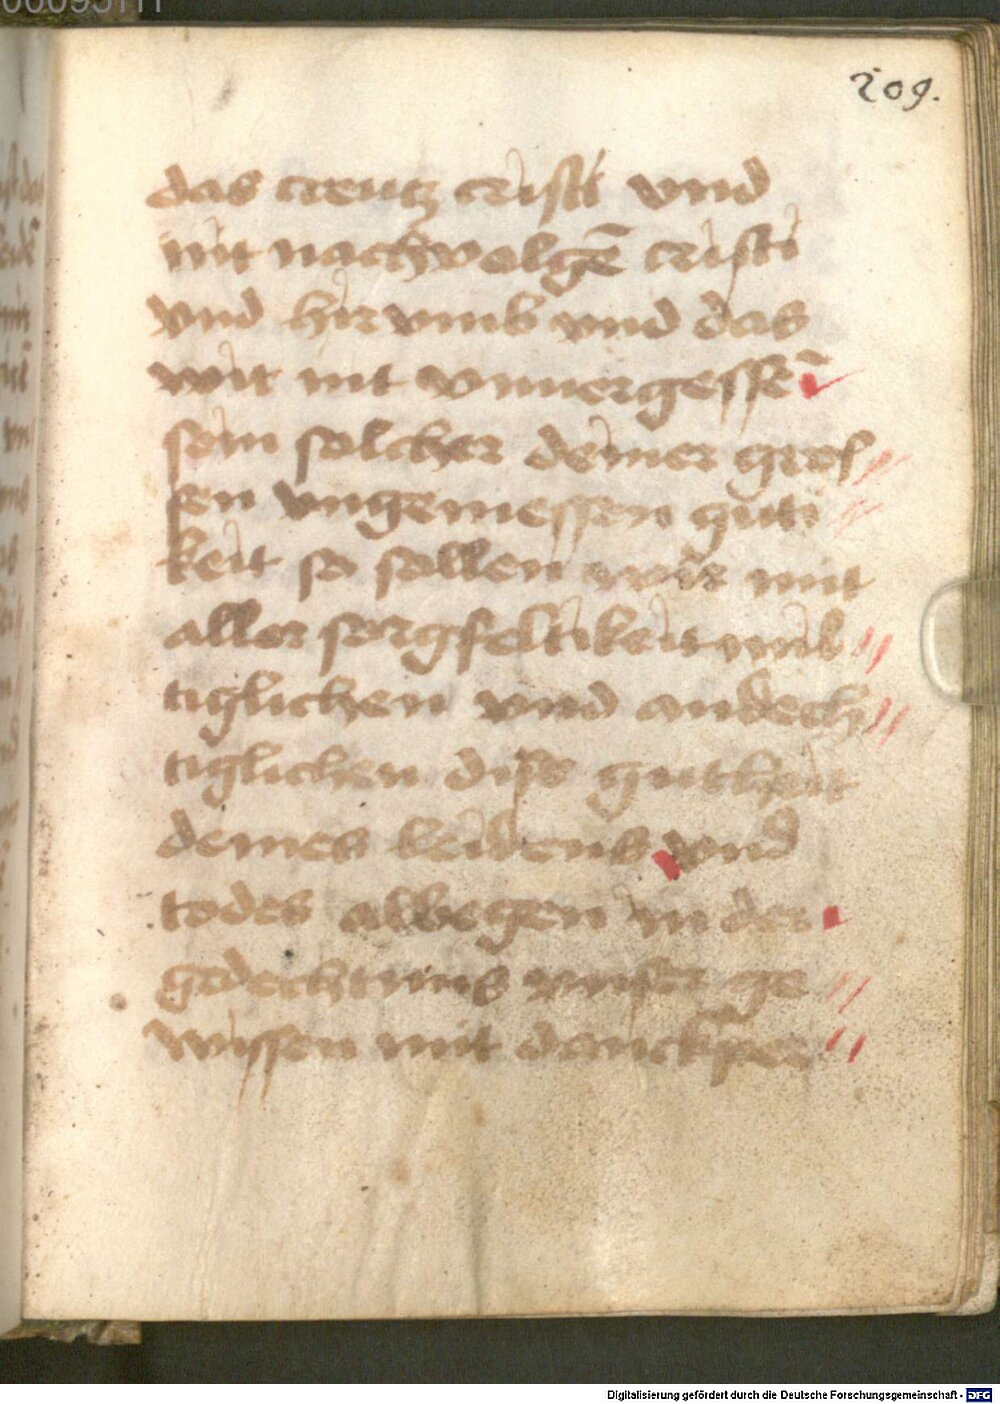 209.
das creutz cristi vnd
nit nachvolgē cristi
vnd hir vmb vnd das
wir nit vnuergessē
sein solcher deiner gros
sen vngemessen guti
keit so sollen wir mit
aller sorgfeltikeit
tiglichen vnd andech
tiglichen dise gutheit
deines leidens vnd
todes albegen in der
gedechtnus vnser ge
wissen mit danckper
Digitalisierung gefördert durch die Deutsche Forschungsgemeinschaft - DFG